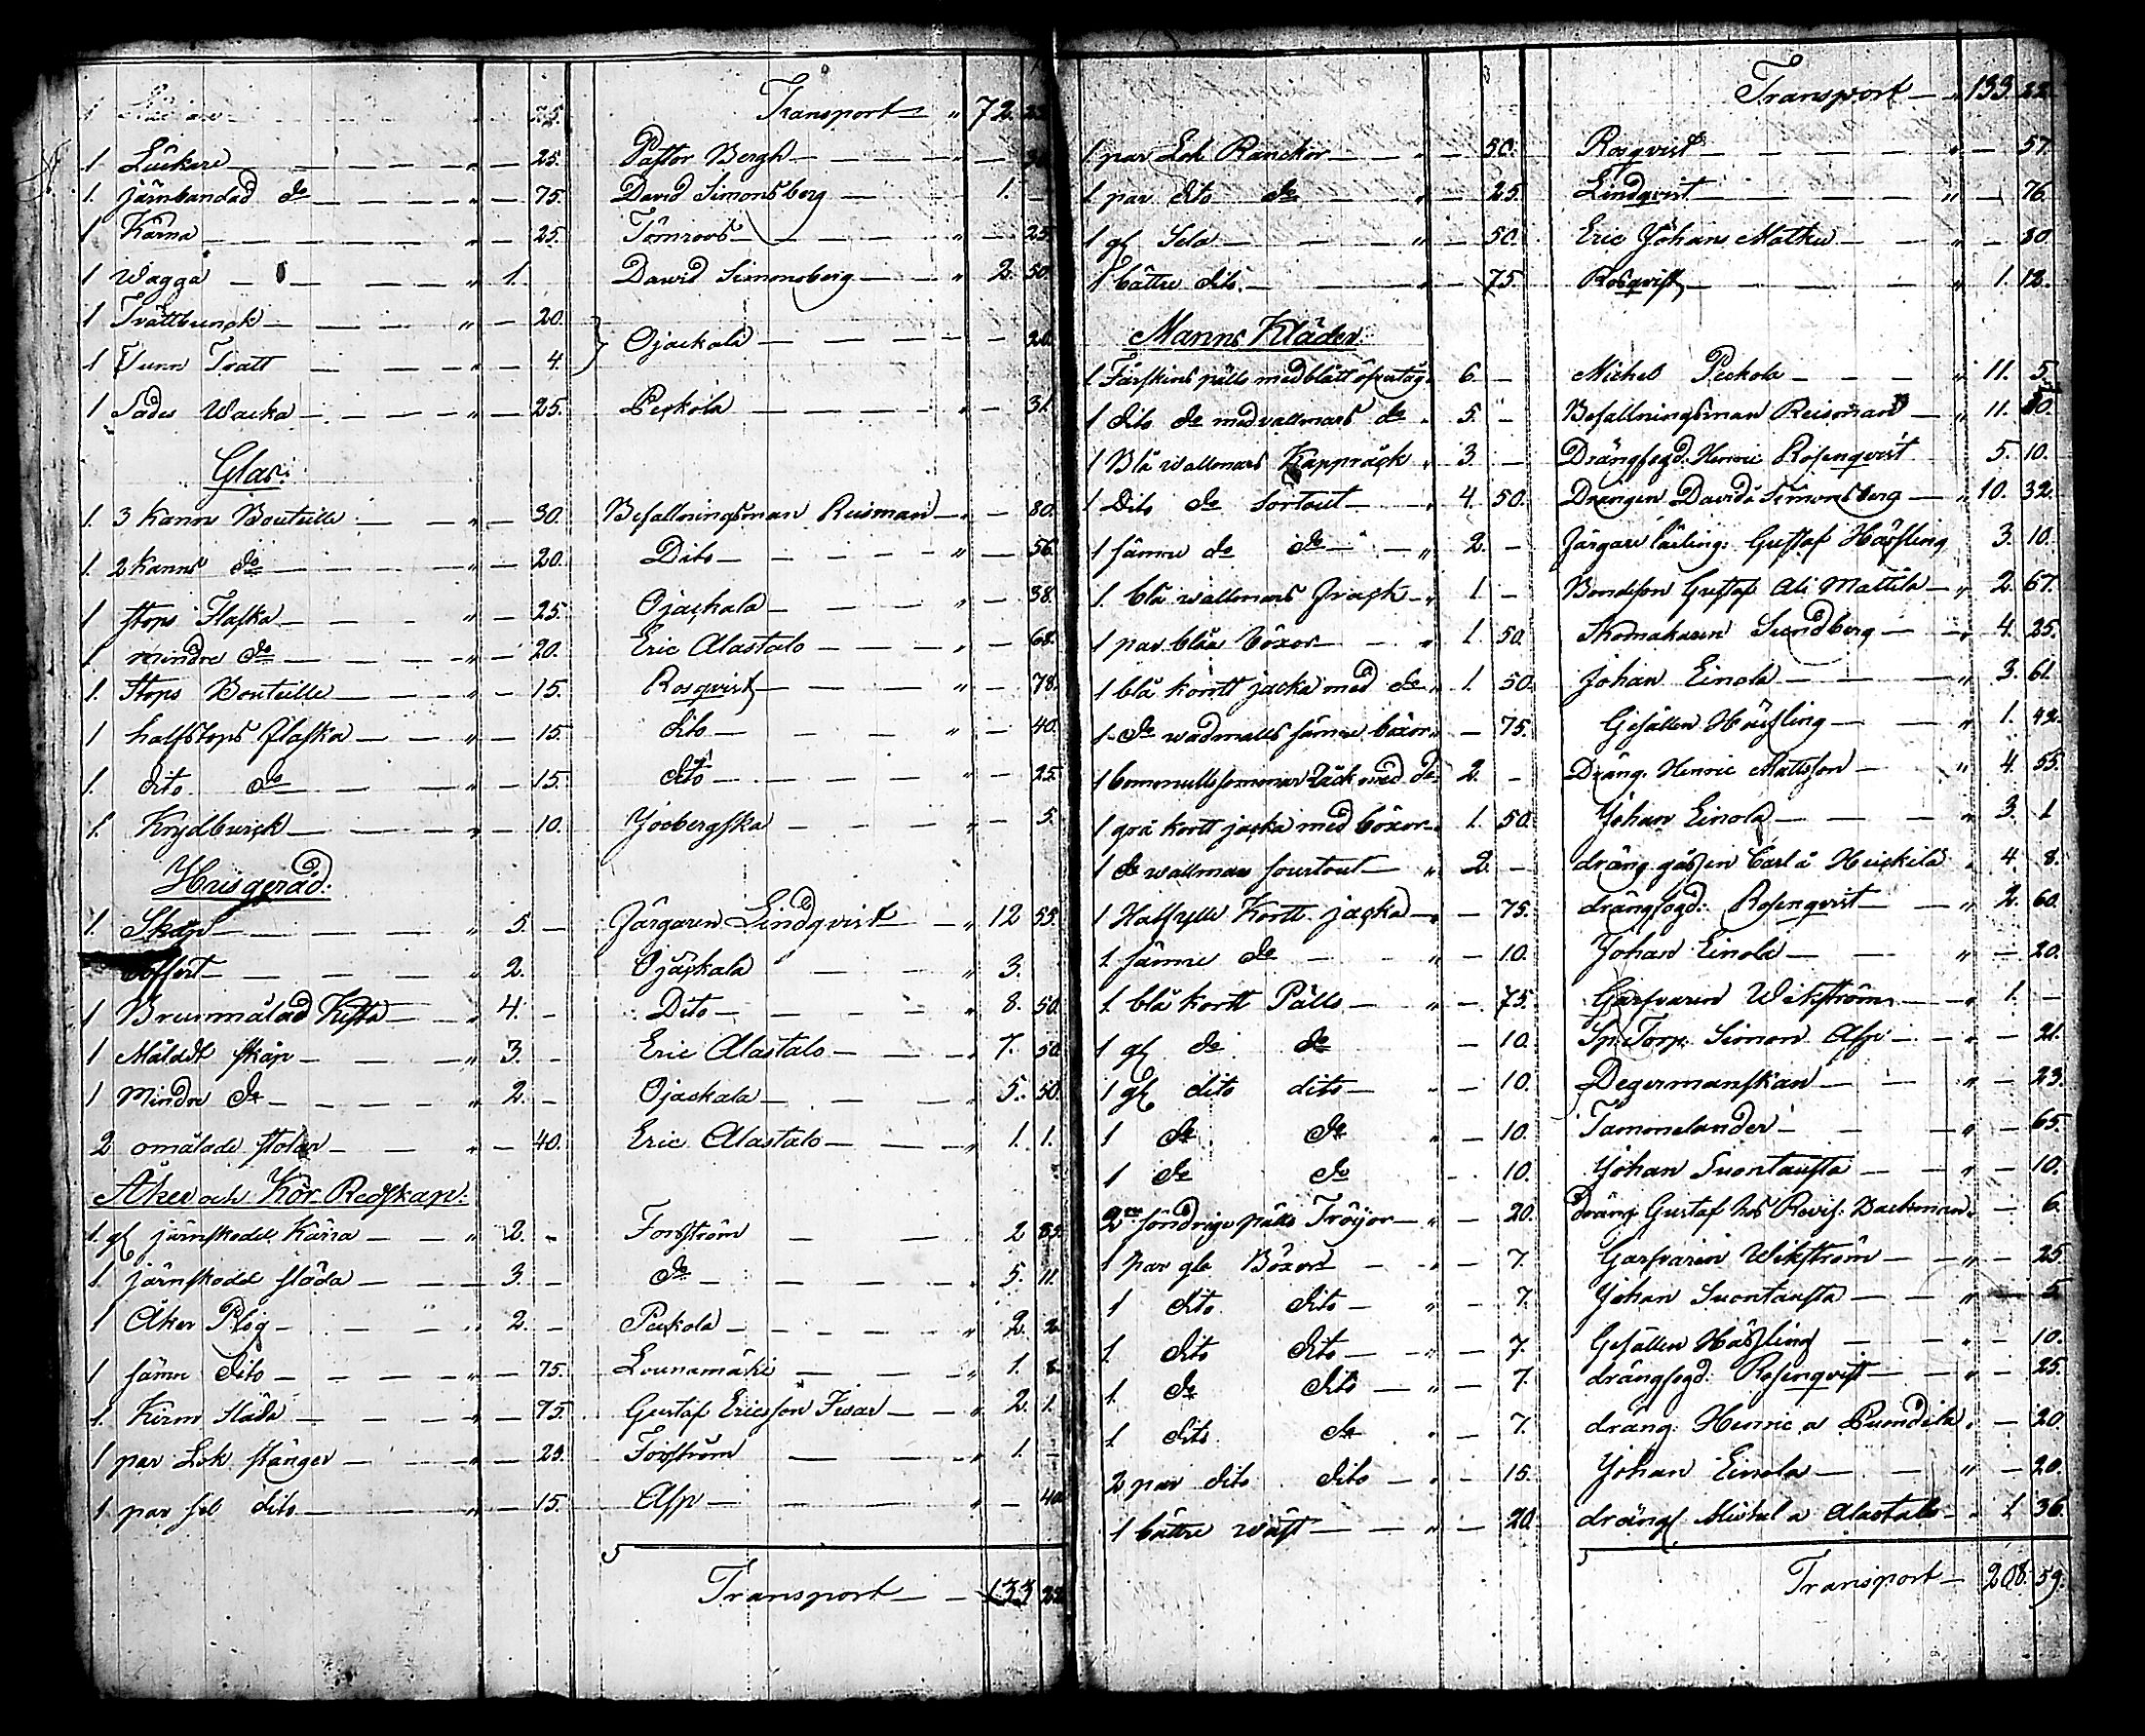 Transport — " 72. 25
1 — " — 25.
1 Lückare — " — 25. Pastor Bergh — " —
1. järnbandad do — " — 75. David Simonsberg — 1. —
1 Kärna — " — 25. Törnroos — " — 25.
1 Wagga — " 1. Dawid Simonsberg — " 2. 50.
1 Tvättbunck — " — 20. } Ojaskala — — 20.
1 Tunn Tratt — — 4.
1 Sädes Wacka — " — 25. Peckola — " — 31.
Glas:
1. 3 Kanns Bouteille — " — 30. Befallningsman Reisman — " — 80.
1. 2 Kanns do — " — 20. Dito — " — 56.
1 stops Flaska — " — 25. Ojaskala — " — 38.
1 mindre do — " — 20. Eric Alastalo — " — 68.
1. Stops Bouteille — " — 15. Rosqvist — " — 78.
1 halfstops flaska — " — 15. dito — " — 40.
1. dito do — " — 15. dito — " — 25.
1. Krydburck — " — 10. — " — 5.
Husgeråd:
1. Skåp — " 5. — Färgaren Lindqvist — " 12 55.
Coffert — " 2. Ojaskala — " 3.
1 Brunmålad Kista — " 4. — Dito — " 8. 50.
1 Måladt skåp — " 3. — Eric Alastalo — " 7. 50
1 Mindre do — " 2. — Ojaskala — " 5. 50.
2 omålade stolar — " — 40. Eric Alastalo — " 1. 1.
Åker och Kör-Redskap:
1. gl järnskodd Kärra — " 2. — Forsström — 2 85.
1 järnskodd släda — 3. — do — " 5. 11.
1 Åker Plog — " 2. — Peckola — " 2. 2.
1 sämr dito — " — 75. Lounamäki — " 1. 8.
1. Kärm släda — " — 75. Gustaf Ericsson — " 2. 1.
1 par Lok stänger — " — 25. Forsström — " 1. —
1 par sel dito — " — 15. Asp — " — 40.
Transport — 133 22
Transport — " 133. 22.
1 par Lok Ranckor — " — 50. Rosqvist — " — 57.
1 par dito do — " — 25. Lindqvist — " — 76.
1 gl Sela — " — 50. Eric Johans — " — 30
1 bättre dito — " — 75. Rosqvist — " 1. 12.
Manns Kläder:
1 Fårskins päls med blått öfvertåg. 6. — Michel Peckola — " 11. 5.
1 dito do med vallmars do " 5. — Befallningsman Reisman — " 11. 50.
1 Blå wallmars Kappråck " 3. — Drängfogd. Henric Rosenqvist 5. 10.
1 Dito do Sortout — " 4. 50. Drängen David à Simonsberg — " 10. 32.
1 sämre do do — " 2. — Färgare lärling. Gustaf Hässling 3. 10.
1. blå wallmars frack — " 1 — Bondeson Gustaf Ali Mattila — " 2. 67.
1 par blåa böxor — " 1. 50. Skomakaren Sundberg — " 4. 25.
1 blå kortt jacka med do " 1. 50. Johan Einola — " 3. 61.
1 do wadmalls sämre böxor " — 75. Gesällen Hässling — " 1. 42.
1 bommulls sommar Råck med do 2. — Dräng. Henric Mattsson — " 4. 55.
1 grå kortt jacka med böxor " 1. 50. Johan Einola — " 3. 1
1 do wallmars sourtout — " 2. — dräng gåssen Carl à Heickilä " 4. 8.
1 Halfylle Kortt jacka — " — 75. drängfogd. Rosenqvist — " 2. 60.
1. sämre do — " — 10. Johan Einola — " — 20.
1. blå kortt Pälls — " — 75. Garfvaren Wikström — " 1. —
1 gl do do — 10. Sp. Torp. Simon Asp — " — 21.
1 gl dito dito — " — 10. Degermanskan — " — 23.
1 do do " — 10. Tammelander — " — 65.
1 do do — 10. Johan Suontausta — " — 10.
2ne söndrige pälls Tröyor — " — 20. dräng Gustaf hos Revis. Backman " — 6.
1 par gla Böxor — " — 7. Garfvaren Wikström — " — 25.
1 dito dito — " — 7. Johan Suontausta — " — 5
1. dito dito — " — 7. Gesällen Hässling — " — 10.
1. do dito — " — 7. drängfogd. Rosenqvist — " — 25.
1. dito do " — 7. dräng. Henric a — 20
2 par dito dito — " — 15. Johan Einola — " — 20.
1 bättre wäst — " — 20. dräng Michel a Alastalo — " 1. 36.
Transport — 208. 59.